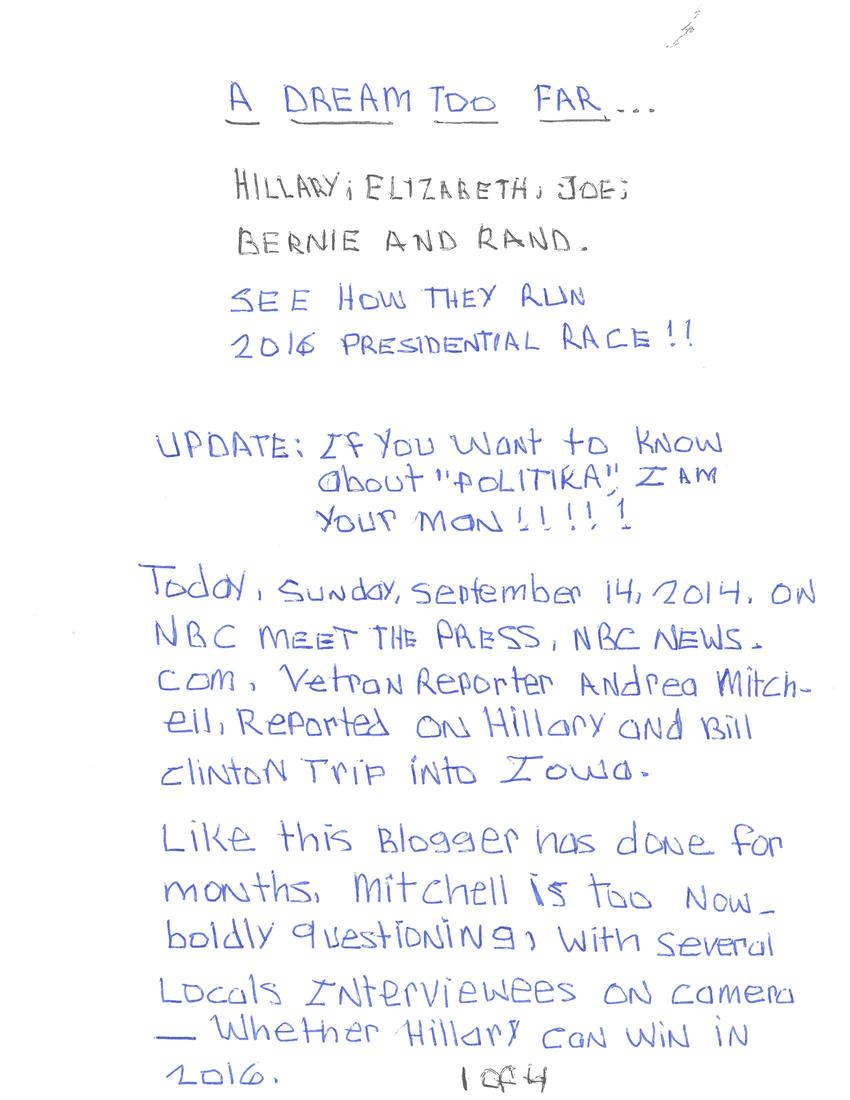 A DREAM TOO FAR...
HILLARY; ELIZABETH, JOE;
BERNIE AND RAND.
SEE HOW THEY RUN
2016 PRESIDENTIAL RACE!!
UPDATE: If You Want to KNOW
about "POLITIKA", I AM
YOUR MAN!!!!!
Today, SUNday, september 14, 2014. ON
NBC MEET THE PRESS, NBC NEWS.
COM, VetraN Reporter ANdrea Mitch-
ell, Reported ON Hillary aNd Bill
CliNtoN Trip iNto Iowa.
Like this Blogger has doNe for
months, Mitchell is too Now_
boldly questioNiNg, with several
Locals INterviewees ON camera
— Whether Hillary caN WiN iN
2016.
1 OF 4